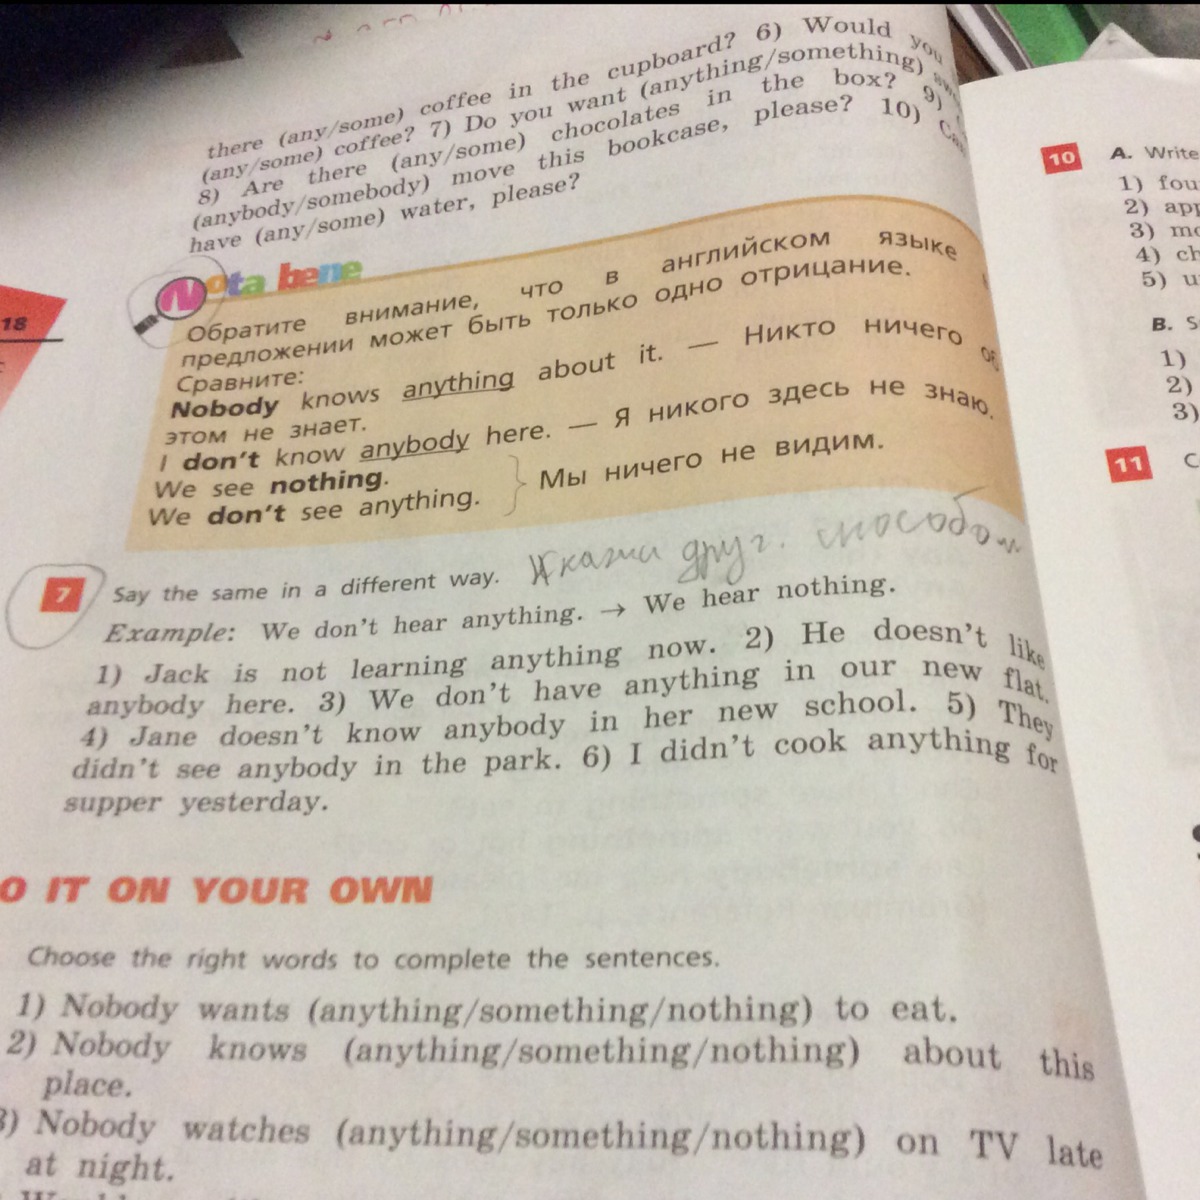 there (any/some) coffee in the cupboard? 6) Would you
(any/some) coffee? 7) Do you want (anything/something)
8) Are there (any/some) chocolates in the box? 9)
(anybody/somebody) move this bookcase, please? 10)
have (any/some) water, please?
Nota bene
Обратите внимание, что в английском языке
предложении может быть только одно отрицание.
Сравните:
Nobody knows anything about it. — Никто ничего об
этом не знает.
I don't know anybody here. — Я никого здесь не знаю.
We see nothing.
We don't see anything.
Мы ничего не видим.
18
друг. способом
7 Say the same in a different way.
Example: We don't hear anything. → We hear nothing.
1) Jack is not learning anything now. 2) He doesn't like
anybody here. 3) We don't have anything in our new flat.
4) Jane doesn't know anybody in her new school. 5) They
didn't see anybody in the park. 6) I didn't cook anything for
supper yesterday.
O IT ON YOUR OWN
Choose the right words to complete the sentences.
1) Nobody wants (anything/something/nothing) to eat.
2) Nobody knows (anything/something/nothing) about this
place.
3) Nobody watches (anything/something/nothing) on TV late
at night.
10 A. Write
1) fou
2) app
3) mo
4) ch
5) u
B. S
1)
2)
3)
11 C